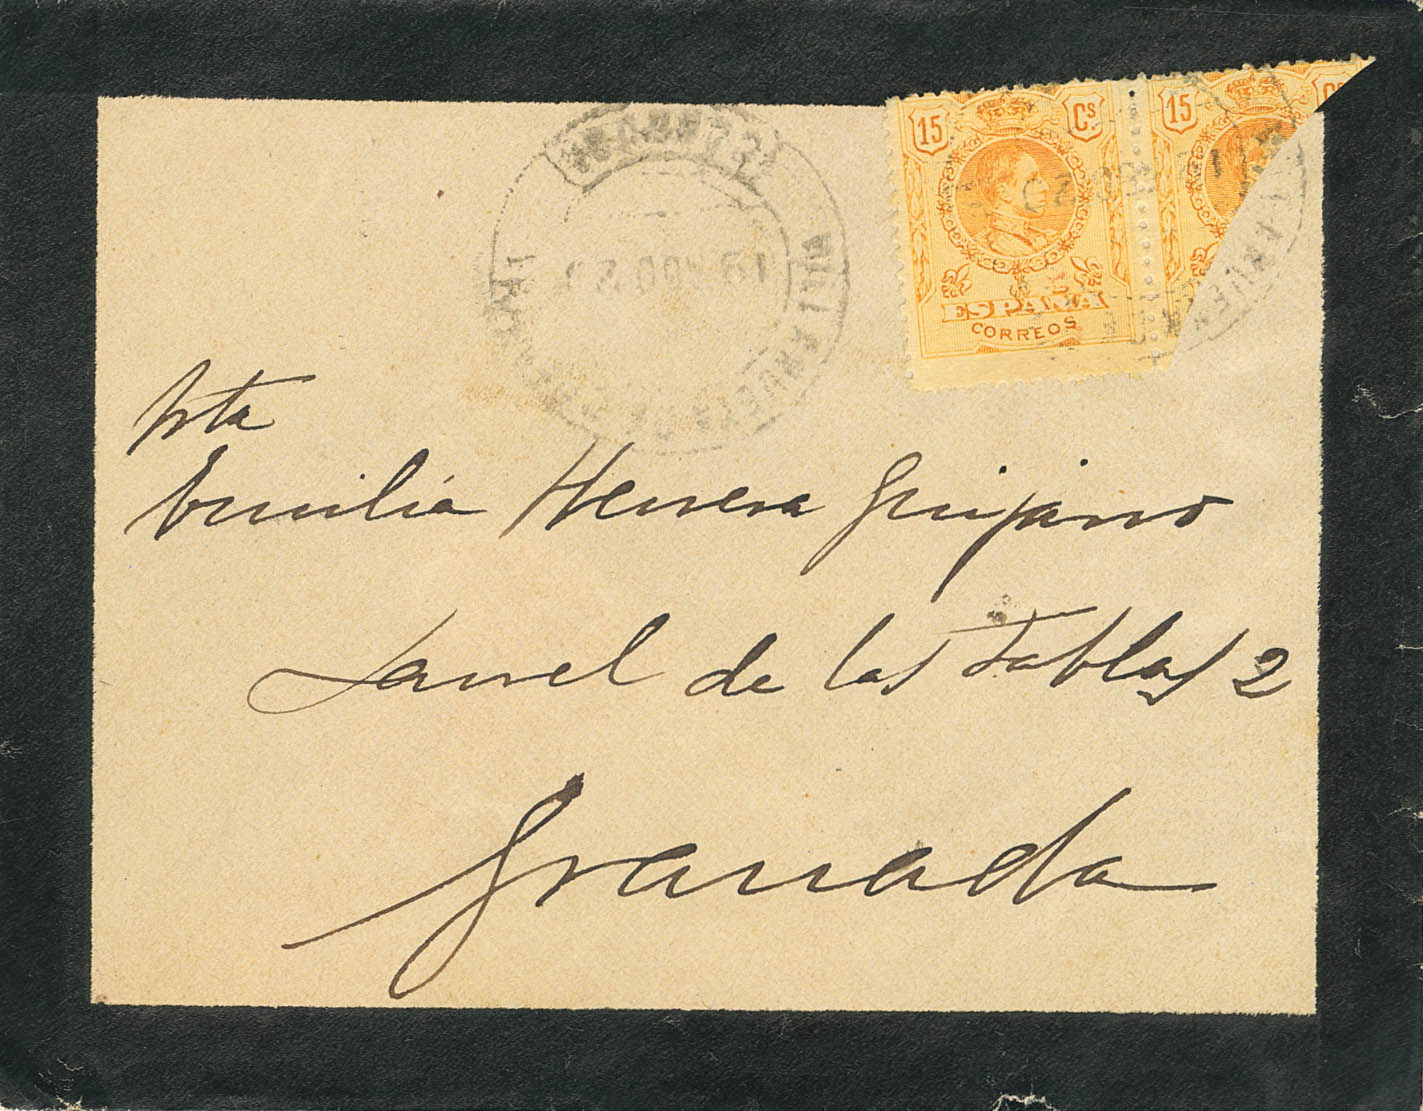 15 Cs 15 Cs
ESPAÑA
CORREOS
Srta
Emilia Herrera Guijarro
Laurel de las Tablas 2
Granada